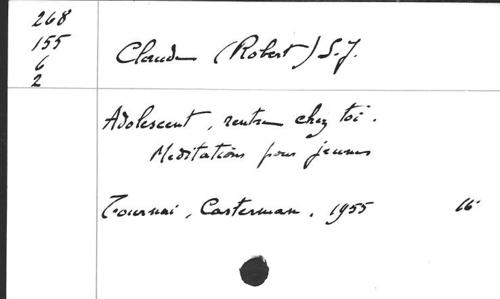 268
155
6
2
Claude (Robert) S.J.
Adolescent, rentre chez toi.
Méditations pour jeunes
Tournai, Casterman, 1955 16°